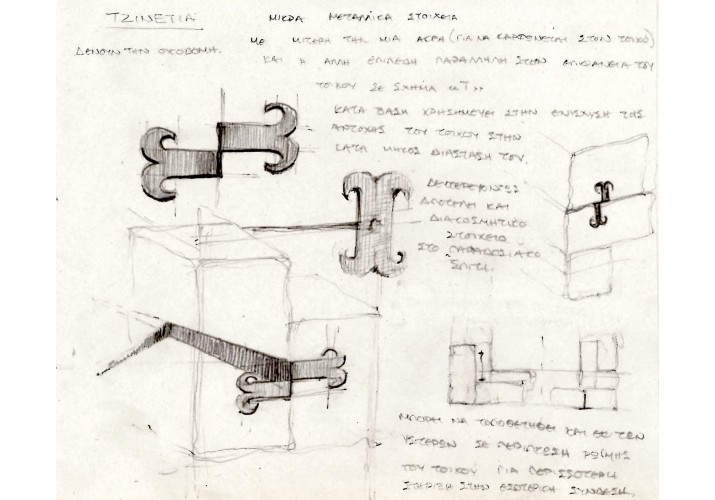 ΤΖΙΝΕΤΙΑ
ΔΕΝΟΥΝ ΤΗΝ ΟΙΚΟΔΟΜΗ.
ΜΙΚΡΑ ΜΕΤΑΛΛΙΚΑ ΣΤΟΙΧΕΙΑ
ΜΕ ΜΥΤΕΡΗ ΤΗΝ ΜΙΑ ΑΚΡΗ (ΓΙΑ ΝΑ ΚΑΡΦΩΝΕΤΑΙ ΣΤΟΝ ΤΟΙΧΟ)
ΚΑΙ Η ΑΛΛΗ ΕΠΙΠΕΔΗ ΠΑΡΑΛΛΗΛΗ ΣΤΗΝ ΕΠΙΦΑΝΕΙΑ ΤΟΥ
ΤΟΙΧΟΥ ΣΕ ΣΧΗΜΑ «Τ»
ΚΑΤΑ ΒΑΣΗ ΧΡΗΣΙΜΕΥΕΙ ΣΤΗΝ ΕΝΙΣΧΥΣΗ ΤΗΣ
ΑΝΤΟΧΗΣ ΤΟΥ ΤΟΙΧΟΥ ΣΤΗΝ
ΚΑΤΑ ΜΗΚΟΣ ΔΙΑΣΤΑΣΗ ΤΟΥ.
ΔΕΥΤΕΡΕΥΟΝΤΩΣ
ΑΠΟΤΕΛΕΙ ΚΑΙ
ΔΙΑΚΟΣΜΗΤΙΚΟ
ΣΤΟΙΧΕΙΟ
ΣΤΟ ΠΑΡΑΔΟΣΙΑΚΟ
ΣΠΙΤΙ.
ΜΠΟΡΕΙ ΝΑ ΤΟΠΟΘΕΤΗΘΕΙ ΚΑΙ ΕΚ ΤΩΝ
ΥΣΤΕΡΩΝ ΣΕ ΠΕΡΙΠΤΩΣΗ ΡΩΓΜΗΣ
ΤΟΥ ΤΟΙΧΟΥ ΓΙΑ ΠΕΡΙΣΣΟΤΕΡΗ
ΣΤΗΡΙΞΗ ΣΤΗΝ ΕΣΩΤΕΡΙΚΗ ΣΥΝΔΕΣΗ.